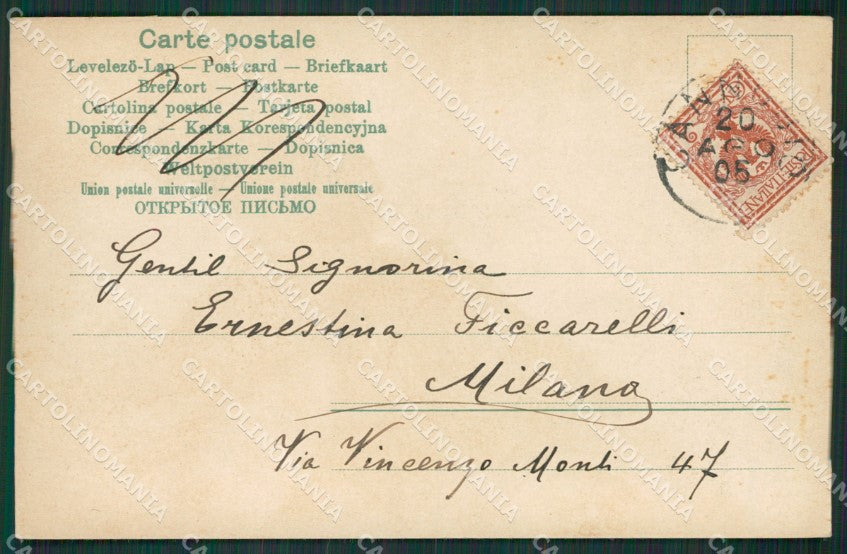 Carte postale
Levelezö-Lap — Post card — Briefkaart
Brefkort — Postkarte
Cartolina postale — Tarjeta postal
Dopisnice — Karta Korespondencyjna
Correspondenzkarte — Dopisnica
Weltpostverein
Union postale universelle — Unione postale universale
ОТКРЫТОЕ ПИСЬМО
20
AGO
05
POSTE ITALIANE
Gentil Signorina
Ernestina Ficcarelli
Milano
Via Vincenzo Monti 47
CARTOLINOMANIA